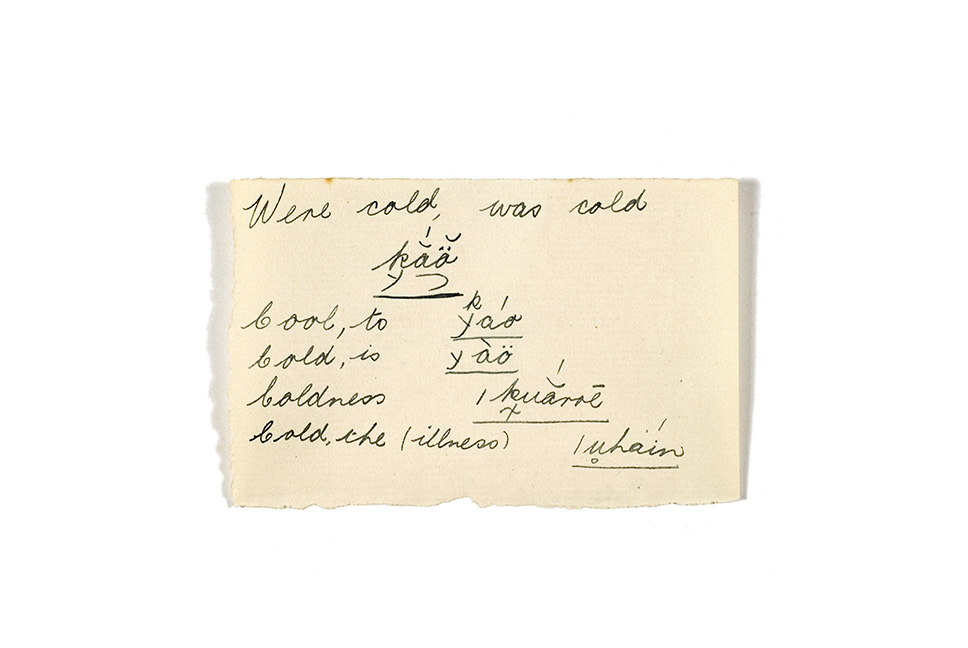 Were cold, was cold
kắŏ̈
Cool, to yáo
Cold, is yàö
Coldness ǀkuắrrē
Cold, the (illness) ǀụhaín